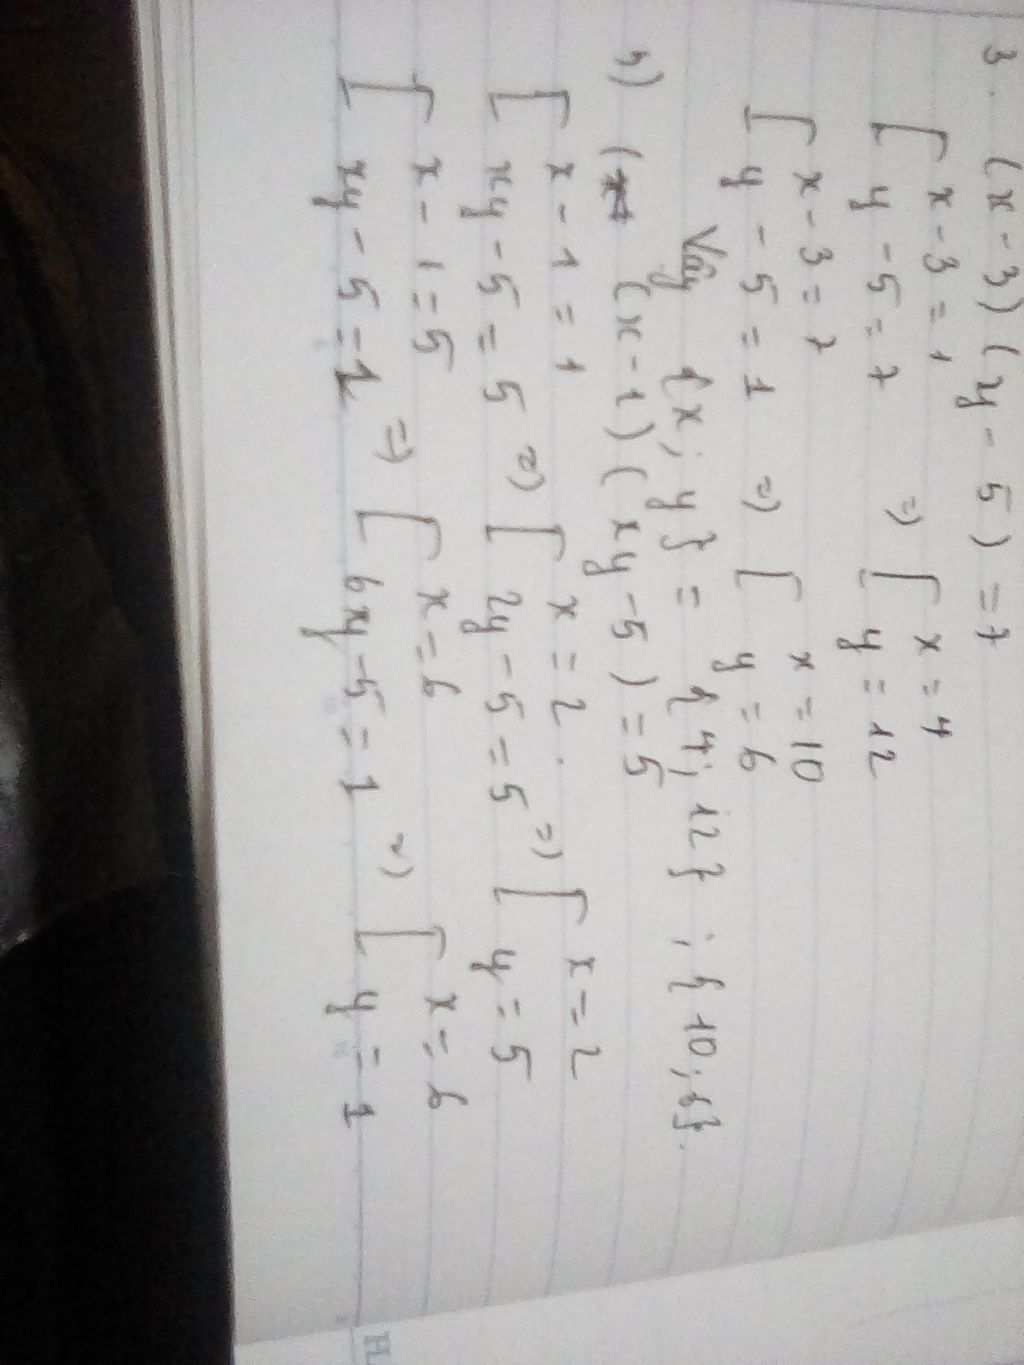 3. (x-3)(y-5)=7
[x-3=1
[y-5=7 => [x=4
[y=12
[x-3=7
[y-5=1 => [x=10
[y=6
Vậy {x; y} = {4; 12} ; {10; 6}.
4) (x-1)(xy-5)=5
[x-1=1
[xy-5=5 => [x=2.
[2y-5=5 => [x=2
[y=5
[x-1=5
[xy-5=1 => [x=6
[6xy-5=1 => [x=6
[y=1
H